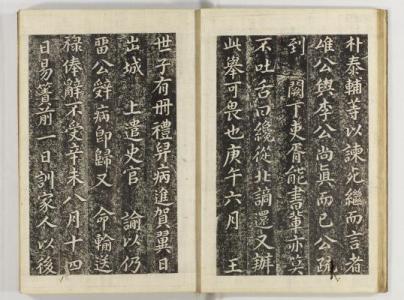 朴泰輔等以諫死繼而言者
雄公與李公尚眞而已公疏
到 闕下吏胥能書輩亦莫
不吐舌曰纔從北謫還又辦
此擧可畏也庚午六月 王
世子有冊禮舁病進賀翼日
出城 上遣史官 諭以仍
留公辭病卽歸又 命輸送
祿俸辭不受辛未八月十四
日易簀前一日訓家人以後